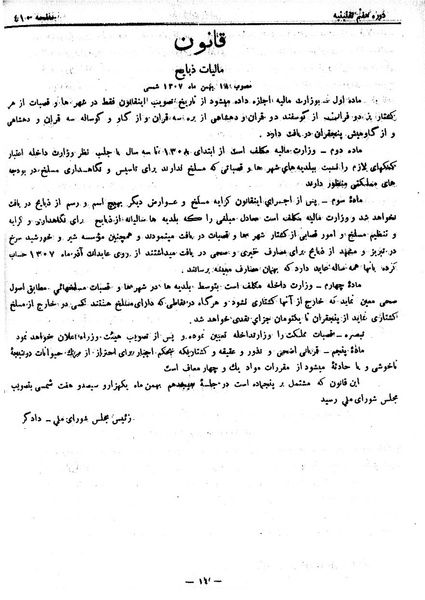 دوره هفتم تقنینیه
صفحه
قانون
مالیات ذبایح
مصوب ۱۸ بهمن ماه ۱۳۰۷ شمسی
ماده اول – بوزارت مالیه اجازه داده میشود از تاریخ تصویب اینقانون فقط در شهرها و قصبات از هر
کشتار بز دو قرانیم از گوسفند دو قران و دهشاهی از بره سه قران و از گاو و گوساله سه قران و دهشاهی
و از گاومیش پنجقران دریافت دارد
ماده دوم – وزارت مالیه مکلف است از ابتدای ۱۳۰۸ تا سه سال با جلب نظر وزارت داخله اعتبار
کمکهای لازم را نسبت ببلدیه‌های شهرها و قصباتی که مسلخ ندارند برای تاسیس و نگاهداری مسلخ در بودجه
های مملکتی منظور دارند
ماده سوم – پس از اجرای اینقانون کرایه مسلخ و عوارض دیگر بهیچ اسم و رسم از ذبایح دریافت
نخواهد شد و وزارت مالیه مکلف است معادل مبلغی را که بلدیه ها سالیانه از ذبایح برای نگاهداری و کرایه
و تنظیم مسلخ و امور قصابی از کشتار شهرها و قصبات دریافت مینمودند و همچنین مؤسسه شیر و خورشید سرخ
در تبریز و مشهد از ذبایح برای مصارف خیری و صحی دریافت میداشتند از روی عایدات آذر ماه ۱۳۰۷ حساب
کرده بآنها همه ساله عاید دارد که بهمان مصارف معینه برسانند.
ماده چهارم – وزارت داخله مکلف است بتوسط بلدیه ها در شهرها و قصبات مسلخهائی مطابق اصول
صحی معین نماید که خارج از آنها کشتاری نشود و هرگاه در نقاطی که دارای مسلخ هستند کسی در خارج از مسلخ
کشتاری نماید از پنجقران تا یکتومان جزای نقدی خواهد شد.
تبصره – قصبات مملکت را وزارت داخله تعیین نموده و پس از تصویب هیئت وزراء اعلان خواهد نمود
ماده پنجم – قربانی اضحی و نذور و عقیقه و کشتاریکه بحکم اجبار برای احتراز از مرگ حیوانات در نتیجه
ناخوشی و یا حادثه میشود از مقررات مواد یک و چهار معاف است
این قانون که مشتمل بر پنجماده است در جلسه هیجدهم بهمن ماه یکهزار و سیصد و هفت شمسی بتصویب
مجلس شورای ملی رسید
رئیس مجلس شورای ملی – دادگر